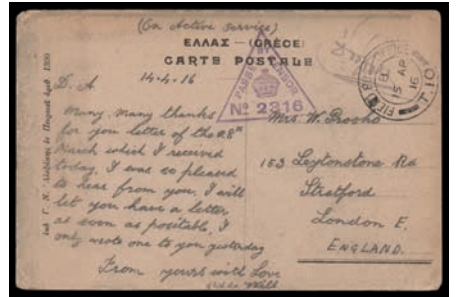 (On Active Service)
ΕΛΛΑΣ — (GRÈCE)
CARTE POSTALE
14-4-16
PASSED CENSOR
Nº 2316
D. A
Many, Many thanks
for you letter of the 28th
March which I received
today, I was so pleased
to hear from you. I will
let you have a letter
as soon as positable, I
only wrote one to you yesterday
From yours with Love
Will
Mrs. W. Brooks
153 Leytonstone Rd
Stratford
London E.
ENGLAND.
15 AP
16